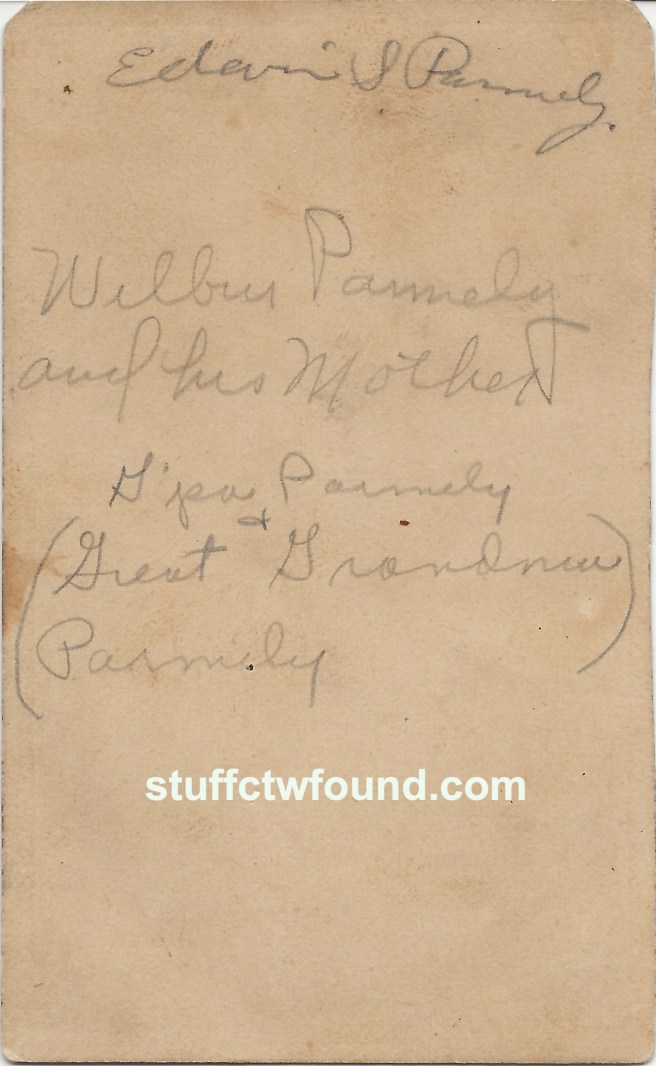 Edwin S Parmely.
Wilbur Parmely
and his Mother
G'pa Parmely
&
(Great Grandma
Parmely)
stuffctwfound.com